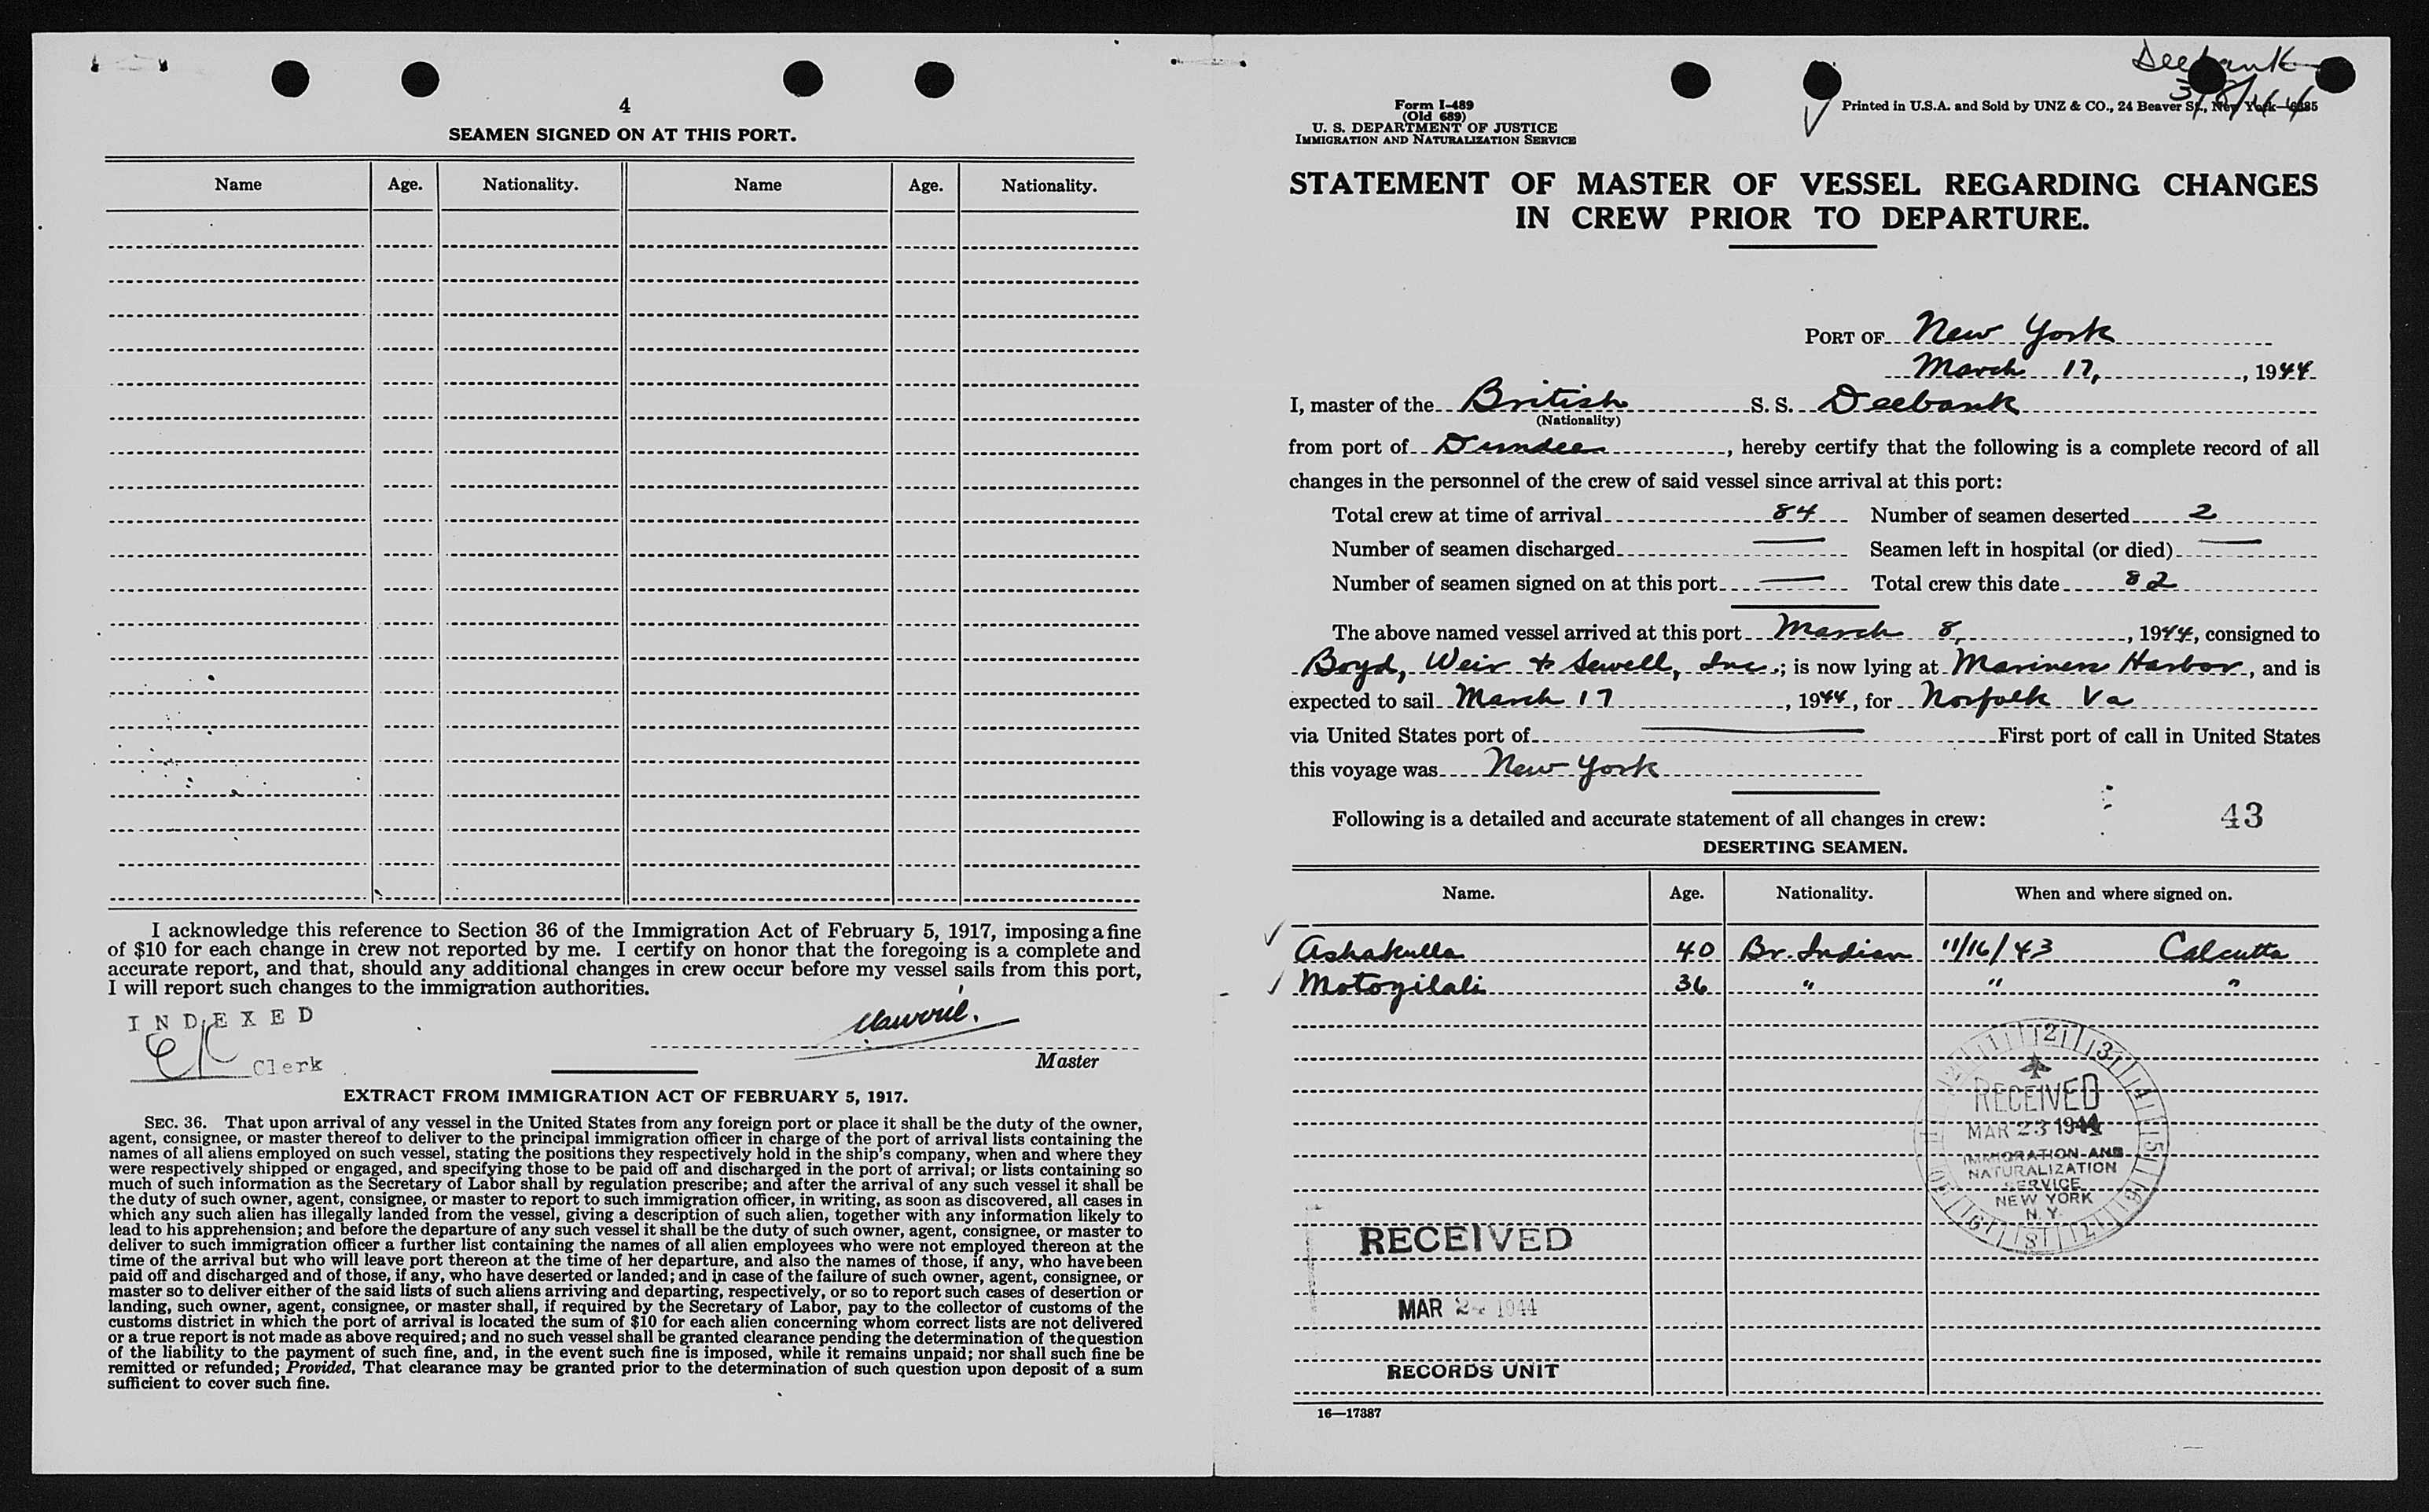 4
SEAMEN SIGNED ON AT THIS PORT.
Name Age. Nationality. Name Age. Nationality.
I acknowledge this reference to Section 36 of the Immigration Act of February 5, 1917, imposing a fine
of $10 for each change in crew not reported by me. I certify on honor that the foregoing is a complete and
accurate report, and that, should any additional changes in crew occur before my vessel sails from this port,
I will report such changes to the immigration authorities.
INDEXED
Clerk
Master
EXTRACT FROM IMMIGRATION ACT OF FEBRUARY 5, 1917.
SEC. 36. That upon arrival of any vessel in the United States from any foreign port or place it shall be the duty of the owner,
agent, consignee, or master thereof to deliver to the principal immigration officer in charge of the port of arrival lists containing the
names of all aliens employed on such vessel, stating the positions they respectively hold in the ship's company, when and where they
were respectively shipped or engaged, and specifying those to be paid off and discharged in the port of arrival; or lists containing so
much of such information as the Secretary of Labor shall by regulation prescribe; and after the arrival of any such vessel it shall be
the duty of such owner, agent, consignee, or master to report to such immigration officer, in writing, as soon as discovered, all cases in
which any such alien has illegally landed from the vessel, giving a description of such alien, together with any information likely to
lead to his apprehension; and before the departure of any such vessel it shall be the duty of such owner, agent, consignee, or master to
deliver to such immigration officer a further list containing the names of all alien employees who were not employed thereon at the
time of the arrival but who will leave port thereon at the time of her departure, and also the names of those, if any, who have been
paid off and discharged and of those, if any, who have deserted or landed; and in case of the failure of such owner, agent, consignee, or
master so to deliver either of the said lists of such aliens arriving and departing, respectively, or so to report such cases of desertion or
landing, such owner, agent, consignee, or master shall, if required by the Secretary of Labor, pay to the collector of customs of the
customs district in which the port of arrival is located the sum of $10 for each alien concerning whom correct lists are not delivered
or a true report is not made as above required; and no such vessel shall be granted clearance pending the determination of the question
of the liability to the payment of such fine, and, in the event such fine is imposed, while it remains unpaid; nor shall such fine be
remitted or refunded; Provided, That clearance may be granted prior to the determination of such question upon deposit of a sum
sufficient to cover such fine.
Deebank
3/8/44
Form I-489
(Old 689)
U. S. DEPARTMENT OF JUSTICE
IMMIGRATION AND NATURALIZATION SERVICE
Printed in U.S.A. and Sold by UNZ & CO., 24 Beaver St., New York
STATEMENT OF MASTER OF VESSEL REGARDING CHANGES
IN CREW PRIOR TO DEPARTURE.
PORT OF New York
March 17, 1944
I, master of the British S. S. Deebank
(Nationality)
from port of Dundee, hereby certify that the following is a complete record of all
changes in the personnel of the crew of said vessel since arrival at this port:
Total crew at time of arrival 84 Number of seamen deserted 2
Number of seamen discharged — Seamen left in hospital (or died) —
Number of seamen signed on at this port — Total crew this date 82
The above named vessel arrived at this port March 8, 1944, consigned to
Boyd, Weir & Sewell, Inc.; is now lying at Mariners Harbor, and is
expected to sail March 17, 1944, for Norfolk Va
via United States port of — First port of call in United States
this voyage was New York
Following is a detailed and accurate statement of all changes in crew:
43
DESERTING SEAMEN.
Name. Age. Nationality. When and where signed on.
Ashakulla 40 Br. Indian 11/16/43 Calcutta
Motozilali 36 " " "
RECEIVED
MAR 23 1944
IMMIGRATION AND
NATURALIZATION
SERVICE
NEW YORK
N.Y.
RECEIVED
MAR 24 1944
RECORDS UNIT
16—17387